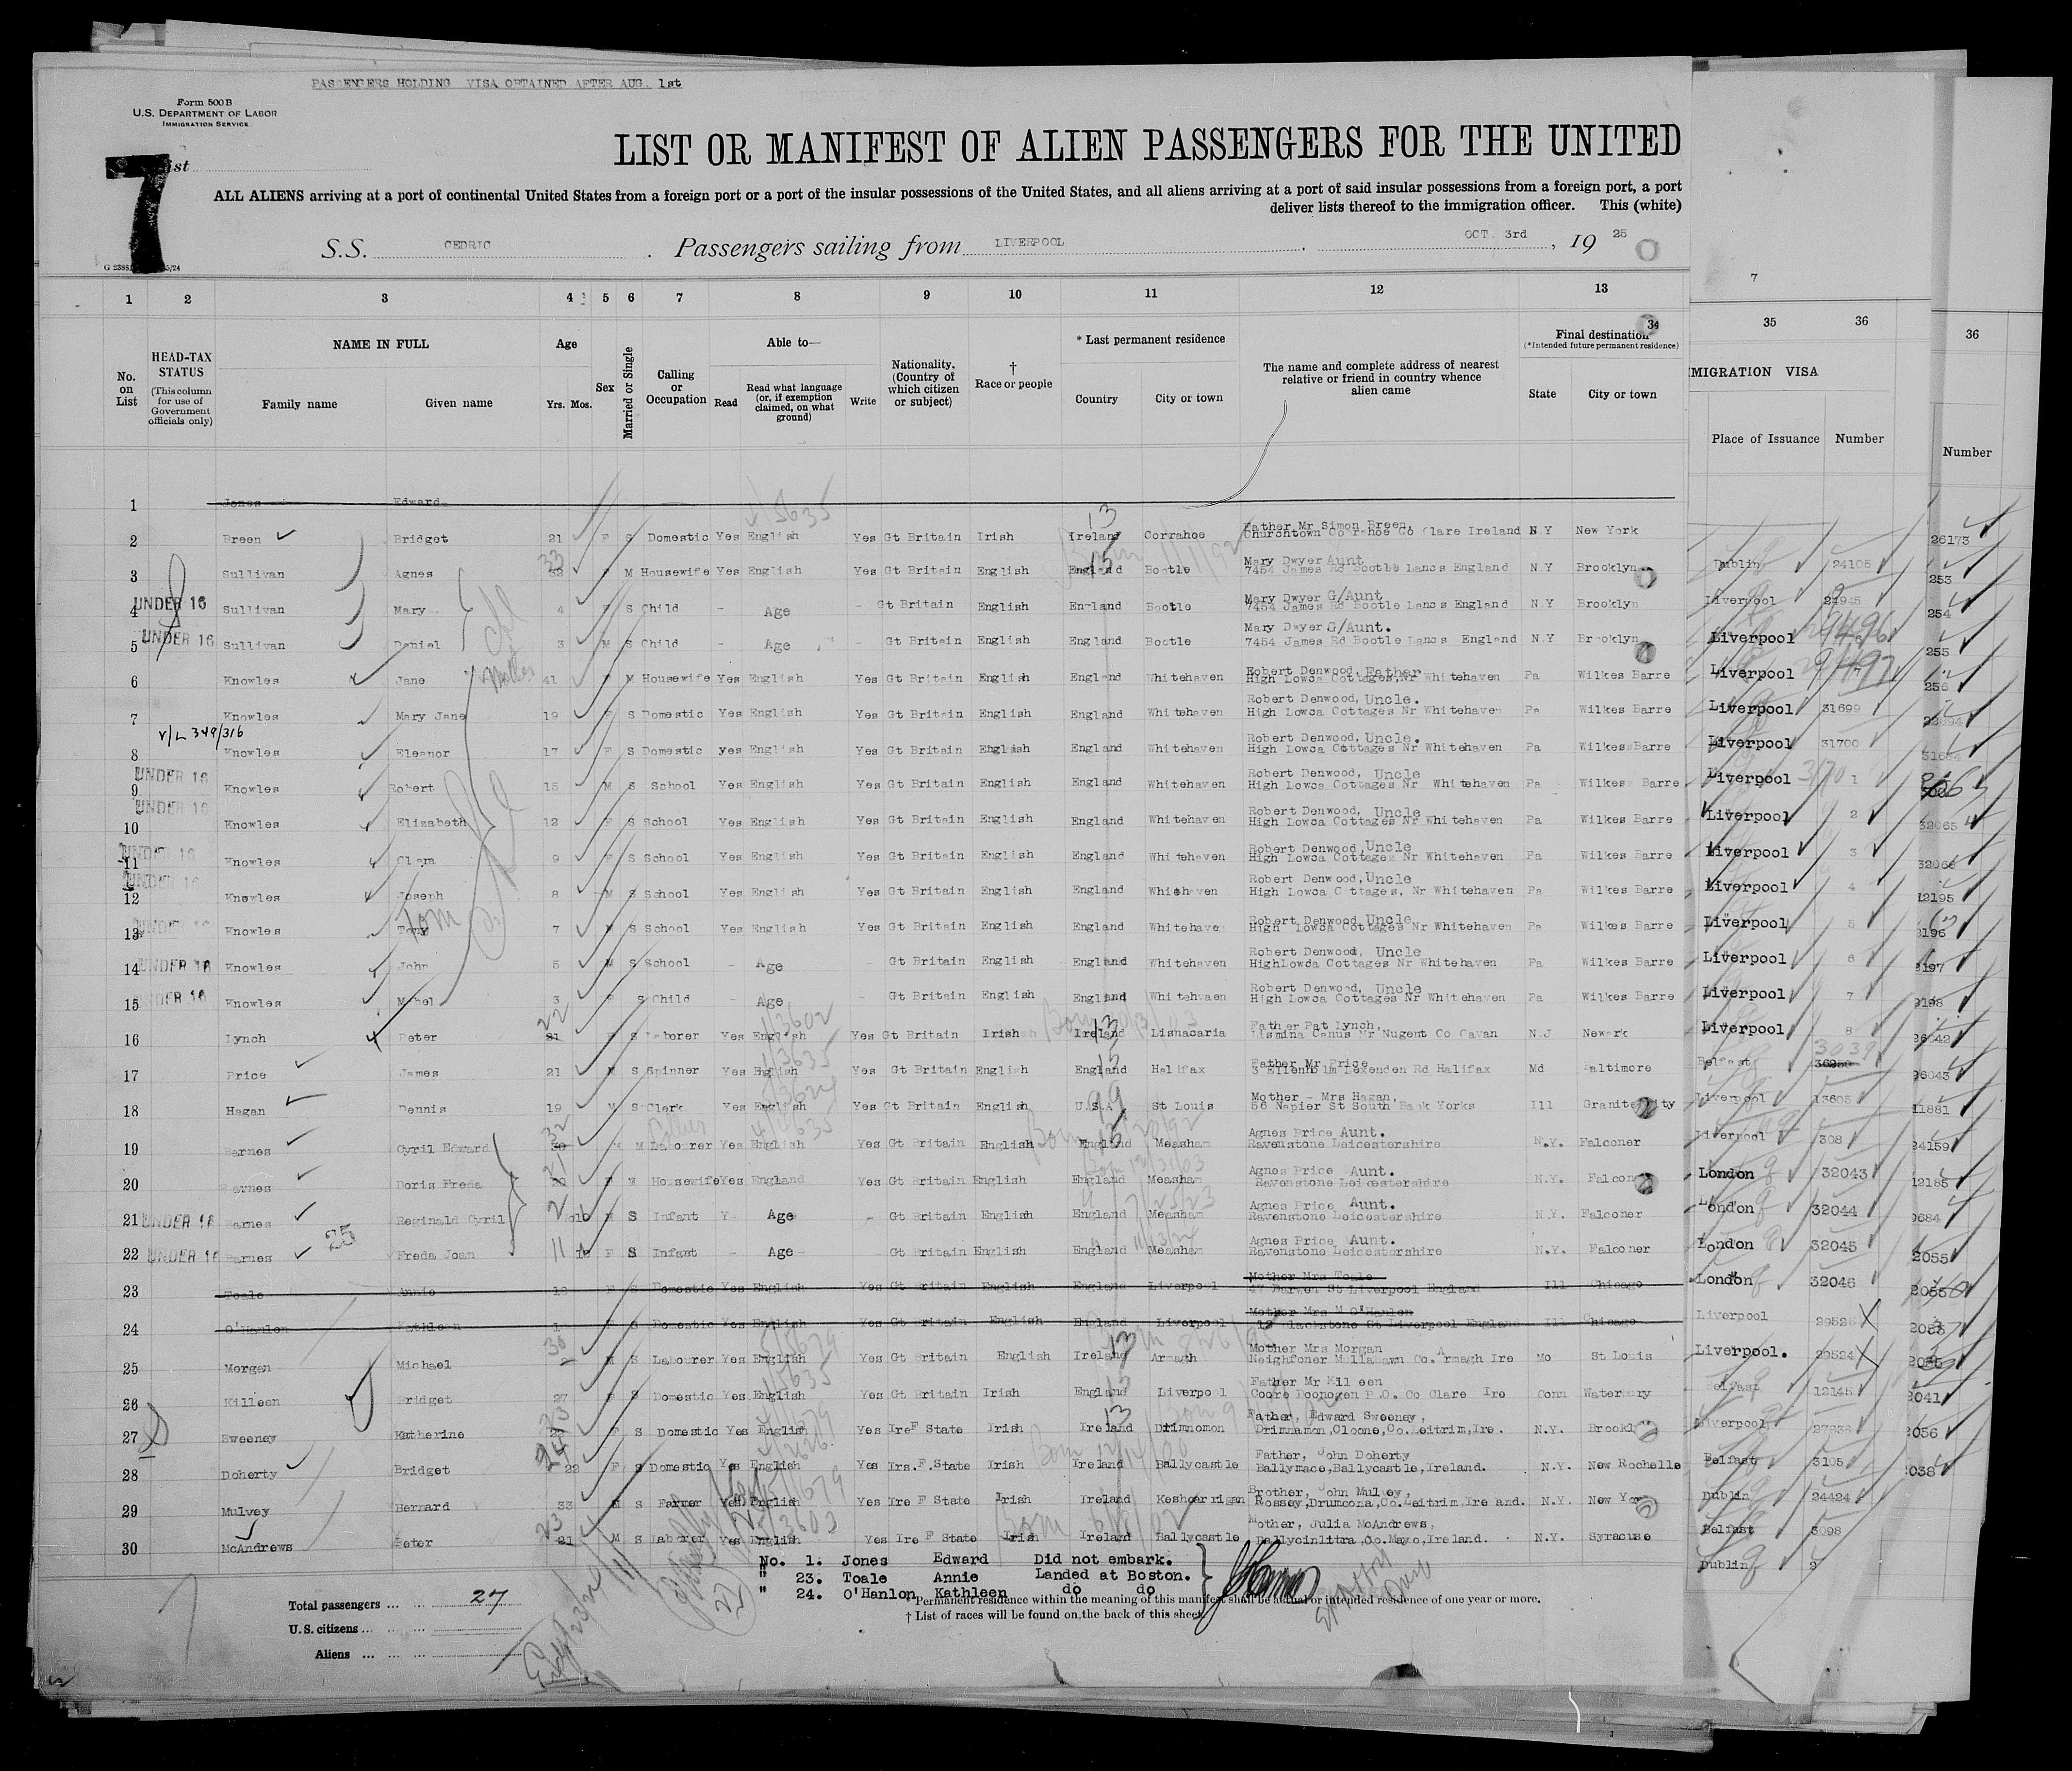 PASSENGERS HOLDING VISA OBTAINED AFTER AUG. 1st
Form 500 B
U.S. DEPARTMENT OF LABOR
IMMIGRATION SERVICE
7
LIST OR MANIFEST OF ALIEN PASSENGERS FOR THE UNITED
ALL ALIENS arriving at a port of continental United States from a foreign port or a port of the insular possessions of the United States, and all aliens arriving at a port of said insular possessions from a foreign port, a port
deliver lists thereof to the immigration officer. This (white)
S.S. CEDRIC. Passengers sailing from LIVERPOOL, OCT. 3rd, 19 25
7
1 2 3 4 5 6 7 8 9 10 11 12 13 34 35 36 36
No. on List
HEAD-TAX STATUS (This column for use of Government officials only)
NAME IN FULL
Family name Given name
Age Yrs. Mos.
Sex
Married or Single
Calling or Occupation
Able to— Read Read what language (or, if exemption claimed, on what ground) Write
Nationality. (Country of which citizen or subject)
† Race or people
* Last permanent residence Country City or town
The name and complete address of nearest relative or friend in country whence alien came
Final destination (*Intended future permanent residence) State City or town
MIGRATION VISA
Place of Issuance Number Number
1 Jones Edward
2 Breen Bridget 21 F S Domestic Yes English Yes Gt Britain Irish Ireland Corrahoe Father Mr Simon Breen, Churchtown Clare Ireland N.Y New York 26173
3 Sullivan Agnes 33 F M Housewife Yes English Yes Gt Britain English England Bootle Mary Dwyer Aunt 7454 James Rd Bootle Lancs England N.Y Brooklyn Dublin 24105 253
4 UNDER 16 Sullivan Mary 4 F S Child - Age - Gt Britain English England Bootle Mary Dwyer G/Aunt 7454 James Rd Bootle Lancs England N.Y Brooklyn Liverpool 254
5 UNDER 16 Sullivan Daniel 3 M S Child - Age Gt Britain English England Bootle Mary Dwyer G/Aunt. 7454 James Rd Bootle Lancs England N.Y Brooklyn Liverpool 255
6 Knowles Jane 41 F M Housewife Yes English Yes Gt Britain English England Whitehaven Robert Denwood, Father High Lowca Cottages Nr Whitehaven Pa Wilkes Barre Liverpool 256
7 Knowles Mary Jane 19 F S Domestic Yes English Yes Gt Britain English England Whitehaven Robert Denwood, Uncle. High Lowca Cottages Nr Whitehaven Pa Wilkes Barre Liverpool 31699
V/L 349/316
8 Knowles Eleanor 17 F S Domestic yes English Yes Gt Britain English England Whitehaven Robert Denwood, Uncle. High Lowca Cottages Nr Whitehaven Pa Wilkes Barre Liverpool 31700
9 UNDER 16 Knowles Robert 15 M S School Yes English Yes Gt Britain English England Whitehaven Robert Denwood, Uncle High Lowca Cottages Nr Whitehaven Pa Wilkes Barre Liverpool 1
10 UNDER 16 Knowles Elizabeth 12 F S School Yes English Yes Gt Britain English England Whitehaven Robert Denwood, Uncle High Lowca Cottages Nr Whitehaven Pa Wilkes Barre Liverpool 2 32065
11 UNDER 16 Knowles Clara 9 F S School Yes English Yes Gt Britain English England Whitehaven Robert Denwood, Uncle High Lowca Cottages Nr Whitehaven Pa Wilkes Barre Liverpool 3 32066
12 UNDER 16 Knowles Joseph 8 M S School Yes English Yes Gt Britain English England Whitehaven Robert Denwood, Uncle High Lowca Cottages, Nr Whitehaven Pa Wilkes Barre Liverpool 4 12195
13 UNDER 16 Knowles Tony Tom 7 M S School Yes English Yes Gt Britain English England Whitehaven Robert Denwood, Uncle High Lowca Cottages Nr Whitehaven Pa Wilkes Barre Liverpool 5 2196
14 UNDER 16 Knowles John 5 M S School - Age - Gt Britain English England Whitehaven Robert Denwood, Uncle HighLowca Cottages Nr Whitehaven Pa Wilkes Barre Liverpool 6 2197
15 UNDER 16 Knowles Mabel 3 F S Child - Age - Gt Britain English England Whitehvaen Robert Denwood, Uncle High Lowca Cottages Nr Whitehaven Pa Wilkes Barre Liverpool 7 2198
16 Lynch Peter 22 S Laborer Yes English Yes Gt Britain Irish Ireland Lisnacaria Father Pat Lynch, Nugent Co Cavan N.J Newark Liverpool 8 26042
17 Price James 21 M S Spinner Yes English Yes Gt Britain English England Halifax Father Mr Price Rd Halifax Md Baltimore Belfast 3039 26043
18 Hagan Dennis 19 M S Clerk Yes English Yes Gt Britain English U.S.A St Louis Mother - Mrs Hagan, 56 Napier St South Bank Yorks Ill Granite City Liverpool 13605 11881
19 Barnes Cyril Edward 32 M M Labourer Yes English Yes Gt Britain English England Measham Agnes Price Aunt. Ravenstone Leicestershire N.Y. Falconer Liverpool 308 24159
20 Barnes Doris Freda 21 F M Housewife Yes England Yes Gt Britain English England Measham Agnes Price Aunt. Ravenstone Leicestershire N.Y. Falconer London 32043 12185
21 UNDER 16 Barnes Reginald Cyril 2 M S Infant Age - Gt Britain English England Measham Agnes Price Aunt. Ravenstone Leicestershire N.Y. Falconer London 32044 9684
22 UNDER 16 Barnes Freda Joan 11 F S Infant - Age - Gt Britain English England Measham Agnes Price Aunt. Ravenstone Leicestershire N.Y. Falconer London 32045 2055
23 Toale Annie 18 F S Domestic Yes English Yes Gt Britain English England Liverpool Mother Mrs Toale St Liverpool England Ill Chicago London 32046
24 O'Hanlon Kathleen F S Domestic Yes English Yes Gt Britain English England Liverpool Mother Mrs M O'Hanlon St Liverpool England Ill Chicago Liverpool
25 Morgan Michael 30 M S Labourer Yes English Yes Gt Britain English Ireland Armagh Mother Mrs Morgan Co. Armagh Ire Mo St Louis Liverpool. 29524
26 Killeen Bridget 27 F S Domestic Yes English Yes Gt Britain Irish England Liverpool Father Mr Killeen Coore Doonogen P.O. Co Clare Ire Conn Waterbury Belfast 12145 2041
27 Sweeney Katherine F S Domestic Yes English Yes Ire F State Irish Ireland Drimnomon Father, Edward Sweeney, Drimnamon, Cloone, Co. Leitrim, Ire. N.Y. Brooklyn Liverpool 2056
28 Doherty Bridget F S Domestic Yes English Yes Irs. F. State Irish Ireland Ballycastle Father, John Doherty Ballymace, Ballycastle, Ireland. N.Y. New Rochelle Belfast 3105 2038
29 Mulvey Bernard 33 M S Farmer Yes English Yes Ire F State Irish Ireland Keshcarrigan Brother, John Mulvey, Rossey, Drumcona, Co. Leitrim, Ireland. N.Y. New York Dublin 24424
30 McAndrews Peter 23 21 M S Laborer Yes English Yes Ire F State Irish Ireland Ballycastle Mother, Julia McAndrews, Ballycinlittra, Co. Mayo, Ireland. N.Y. Syracuse Belfast 3098
Dublin
No. 1. Jones Edward Did not embark.
" 23. Toale Annie Landed at Boston.
" 24. O'Hanlon Kathleen do do
Total passengers ... ... 27
U.S. citizens ... ...
Aliens ... ... ...
* Permanent residence within the meaning of this manifest shall be actual or intended residence of one year or more.
† List of races will be found on the back of this sheet.